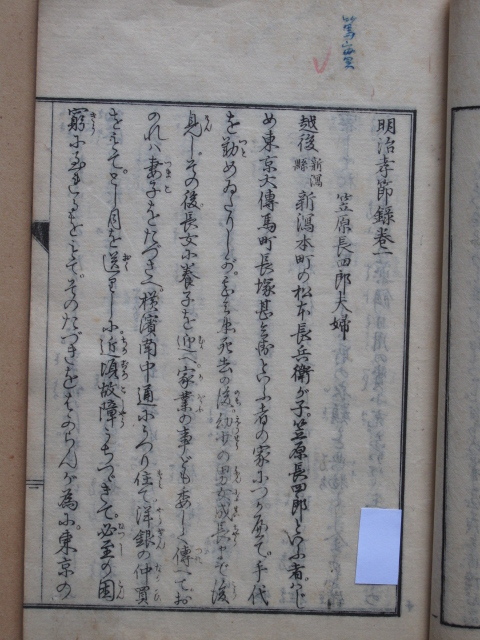 篤實
明治孝節録巻一
笠原長四郎夫婦
越後新潟縣新潟本町の松本長兵衛が子。笠原長四郎といふ者。はじ
め東京大傳馬町長塚甚兵衛といふ者の家につかへて。手代
を勤めゐたりしが。甚兵衛死去の後。幼少の男女成長まで後
見し。その後長女に養子を迎へ家業の事ども委しく傳へて
のれハ妻子をたづさへ横濱南中通にうつり住て。洋銀の仲買
をもて。とし月を送りしに。近頃故障うちつゞきて。必至の困
窮に。そのたづきをもとめんが為に。東京の